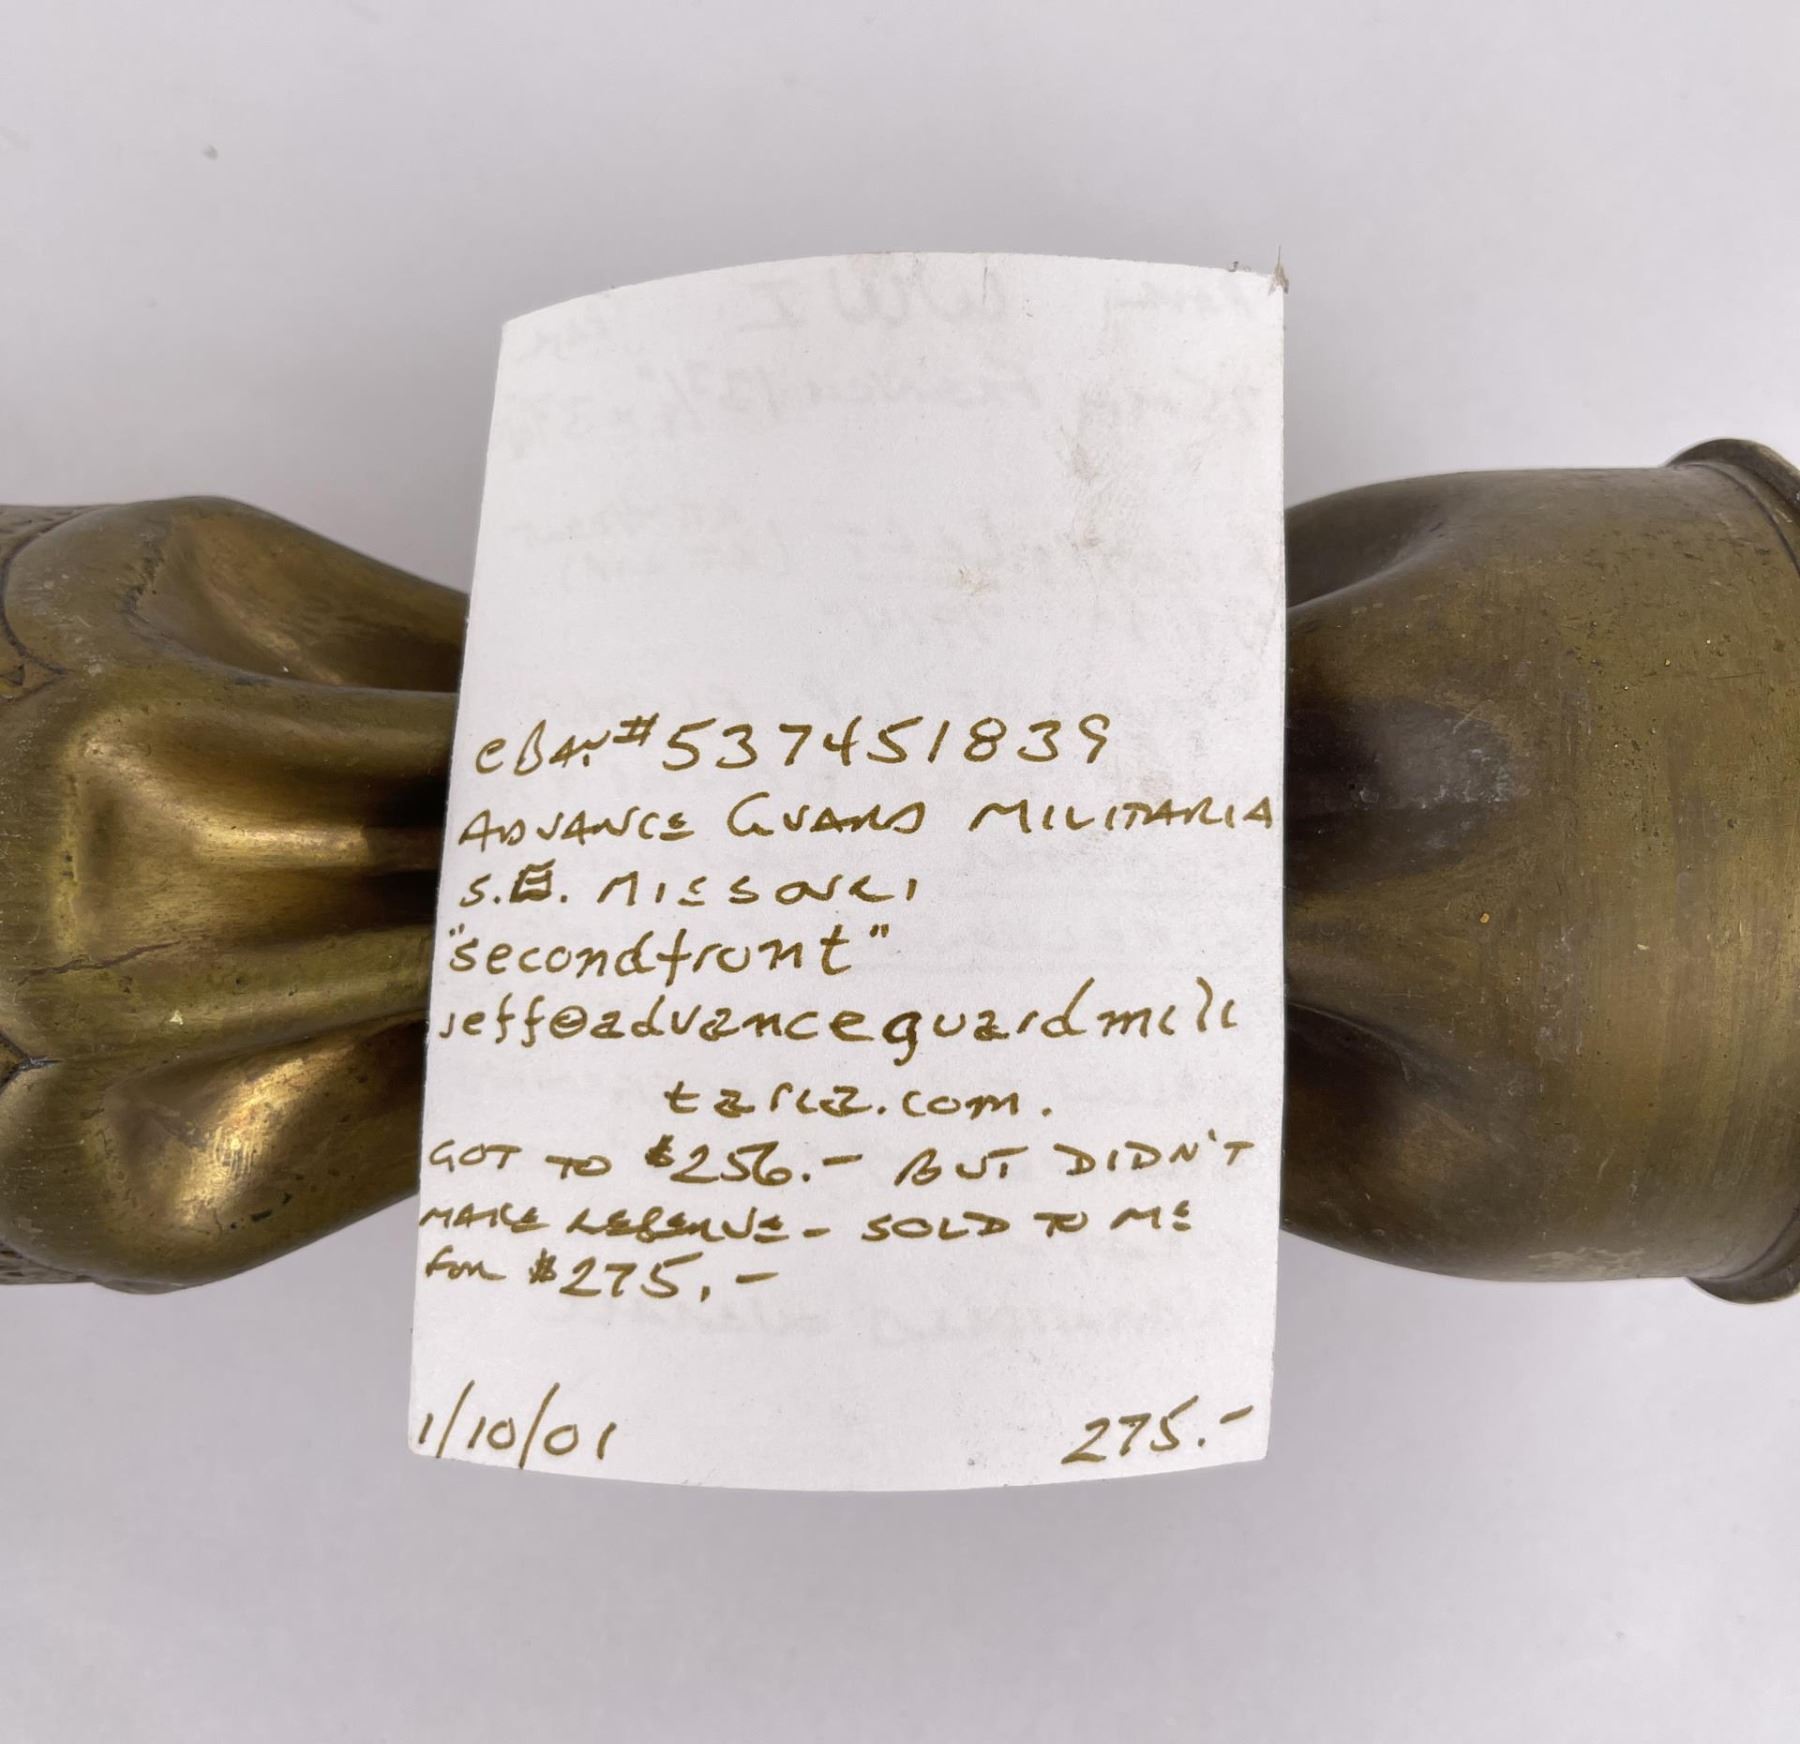 eBay # 537451839
ADVANCE GUARD MILITARIA
S.E. MISSOURI
"secondfront"
jeff@advanceguardmili
taria.com.
GOT TO $256.- BUT DIDN'T
MAKE RESERVE - SOLD TO ME
FOR $275.-
1/10/01 275.-